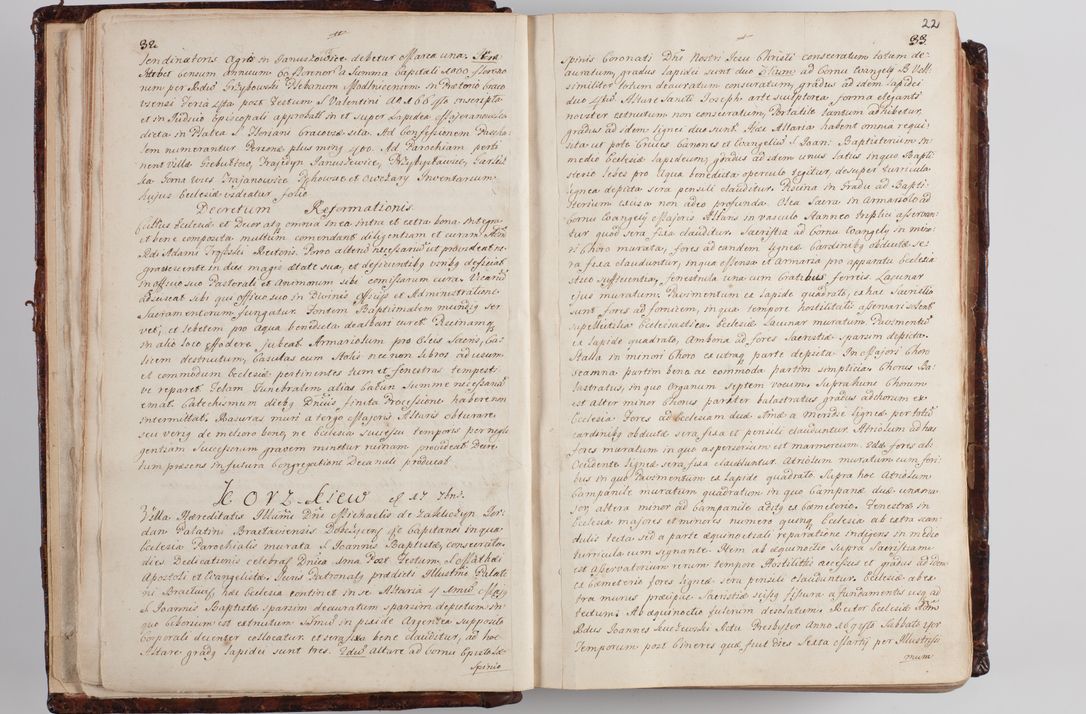 32.
Vendinatoris Agris in Januszowice debetur Marca una.
Attebet Censum annuum 60 florenorum a Summa Capitali 1000 floreno
rum per Rdum Grzybowski Plebanum Modlnicensem in Prætorio Craco
viensi Feria 4ta post Festum S. Valentini Ao 1667mo inscripto
et in Judicio Episcopali approbati in et Super Lapidea Majeranowska
dicta in Platea S. Floriani Cracoviæ sita. Ad Confessionem Pascha
lem numerantur Personæ plus minus 400. Ad Parochiam perti
nent Villæ Giebułtow, Trojedyn Januszowice, Przybysławice,
Gorna wies Trojanowice Pękowice et Owczary Inventarium
hujus Ecclesiæ videatur folio
Decretum Reformationis
Cultus Ecclesiæ et Decor atq omnia in ea intra et extra bona integra
et bene composita multum comendant diligentiam et curam
Rdi Adami Rectoris. Porro alterum necessarium est provideat ne
gravescente in dies magis ætate sua, et deficientibq viribq deficiat
in officio suo Pastorali et Animarum sibi comissarum cura. Vicarium
adsciscat sibi qui officio suo in Divinis Officiis et Administratione
Sacramentorum fungatur. Fontem Baptismalem mundiq ser
vet, et lebetem pro aqua benedicta dealbari curet. Piscinam
in alio loco effodere jubeat. Armariolum pro Oleis Sacris, Ca
licem destructum, Casulas cum Stolis nec non libros ad usum
et commodum Ecclesiæ pertinentes tum et fenestras tempesti
ve reparet. Telam Funebralem alias Całun Summe necessariam
emat. Catechismum diebq Dnicis finita Processione habere non
intermittat. Rasuras muri a tergo Majoris Altaris obturare
seu verius de meliori bene, ne Ecclesia Successu temporis per negli
gentiam Successorum gravem minetur ruinam provideat Decre
tum præsens in futura Congregatione Decanali producat.
Korzkiew
Villa Hæreditatis Illumi Dni Michaelis de Zakliczyn Jor
dan Palatini Bracłaviensis Dobczycensis Capitanei in qua
Ecclesia Parochialis murata S. Joannis Baptistæ, consecrata
dies Dedicationis celebratur Dnica 1ma Post Festum S. Mathæi
Apostoli et Evangelistæ. Juris Patronatus prædicti Illustrmi Palati
ni Braclaviensis hæc Ecclesia continet in se Altaria 4 1mum Majus
S. Joannis Baptistæ sparsim deauratum sparsim depictum in
quo Ciborium est extructum 1mum in pixide Argentea supposito
Corporali decenter collocatur et sera fixa bene clauditur, ad hoc
Altare gradus lapidei sunt tres. 2dum Altare ad Cornu Epistolæ
Spinis
22
33
Spinis Coronati Dni Nostri Jesu Christi consecratum totum de
auratum, gradus lapidei sunt duo 3tium ad Cornu Evangelij B. V.
similiter totum deauratum consecratum, gradus ad idem lapidei
duo 4tum Altare Sancti Joseph. arte sculptorea forma eleganti
noviter extructum non consecratum, Portatile tantum adhibetur
gradus ad idem lignei duo sunt. Hæc Altaria habent omnia requi
sita ut pote Cruces Canones et Evangelium S. Joan. Baptisterium in
medio Ecclesiæ lapideum, gradus ad idem unus latus in quo Bapti
sterio lebes pro Aqua benedicta operculo tegitur, desuper turricula
lignea depicta sera pensili clauditur. Piscina in Gradu ad Bapti
sterium excisa non adeo profunda. Olea Sacra in Armariolo ad
Cornu Evangelij Majoris Altaris in vasculo stanneo triplici asservan
tur quod sera fixa clauditur. Sacristia ad Cornu Evangelij in mino
ri Choro murata, fores ad eandem ligneæ Cardinibq obductæ se
ra fixa clauduntur, in qua Mensa et Armaria pro apparatu Ecclesiæ
stico sufficientia, fenestrula una cum Cratibus ferreis Lacunar
ejus muratum Pavimentum ex lapide quadrato, ex hac Sacristia
sunt fores ad fornicem, in qua tempore hostilitatis asservari solent
supellectilia Ecclesiastica. Ecclesiæ Lacunar muratum. Pavimentum
ex lapide quadrato, Ambona ad fores Sacristiæ sparsim depicta.
Stalla in minori Choro ex utraq parte depicta. In Majori Choro
scamna partim bona ac commoda partim simplicia. Chorus Ba
lustratus, in quo Organum septem vocum. Supra hunc Chorum
est alter minor Chorus pariter balustratus gradus ad Chorum ex
Ecclesia. Fores ad Ecclesiam duæ a meridie ligneæ per totum
cardinibq obductæ sera fixa et pensili clauduntur. Atriolum ad has
fores muratum in quo aspersorium est marmoreum. 2dæ fores ab
Occidente ligneæ sera fixa clauduntur. Atriolum muratum cum fori
bus in quo Pavimentum ex lapide quadrato. Supra hoc Atriolum
Campanile muratum quadratum in quo Campanæ duæ una ma
jor, altera minor ad Campanile aditus ex Cœmeterio. Fenestræ in
Ecclesia majores et minores numero quinq. Ecclesia ab extra scan
dulis tecta sed a parte æquinoctiali reparatione indigens in medio
turricula cum signante. Item ab æquinoctio Supra Sacristiam
est asservatorium rerum tempore Hostilitatis accessus et gradus ad idem
ex Cœmeterio fores ligneæ sera pensili clauduntur. Ecclesiæ ab ex
tra murus præcipue Sacristiæ scissus fissura a fundamentis usq ad
tectum. Ab æquinoctio fulcrum desolatum. Rector Ecclesiæ
Rdus Joannes Actu Presbyter Anno 1697mo Sabbato 4or
Temporum post Cineres quæ fuit dies Sexta Martij per Illustrissi
mum